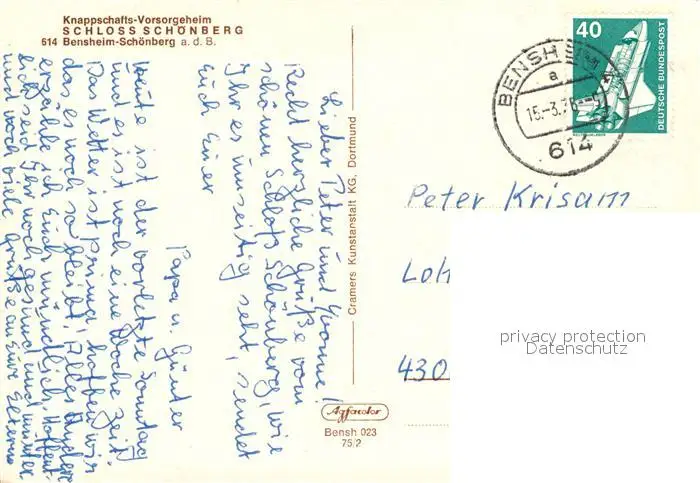 Knappschafts-Vorsorgeheim
SCHLOSS SCHÖNBERG
614 Bensheim-Schönberg a. d. B.
Lieber Peter und Yvonne!
Recht herzliche Grüße vom
schönen Schloß Schönberg, wie
Ihr es umseitig seht, sendet
Euch Euer
Papa u. Günter
Heute ist der vorletzte Sonntag
und es ist noch eine Woche Zeit.
Das Wetter ist prima, hoffen wir
das es noch so bleibt. Alles Andere
erzähle ich Euch mündlich. Hoffent-
lich seid Ihr noch gesund und munter
und noch viele Grüße an Eure Eltern
Cramers Kunstanstalt KG, Dortmund
Agfacolor
Bensh 023
75/2
40
DEUTSCHE BUNDESPOST
WELTRAUMLABOR
BENSHEIM
a
15.-3.
614
Peter Krisam
Loh
430
privacy protection
Datenschutz